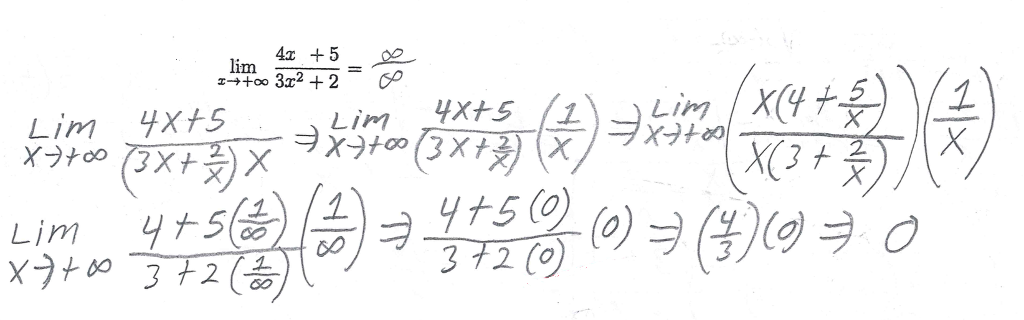 lim x→+∞ (4x + 5)/(3x² + 2) = ∞/∞
Lim x→+∞ (4x+5)/((3x+2/x)x) ⇒ Lim x→+∞ (4x+5)/(3x+2/x) (1/x) ⇒ Lim x→+∞ ((x(4+5/x))/(x(3+2/x))) (1/x)
Lim x→+∞ (4+5(1/∞))/(3+2(1/∞)) (1/∞) ⇒ (4+5(0))/(3+2(0)) (0) ⇒ (4/3)(0) ⇒ 0